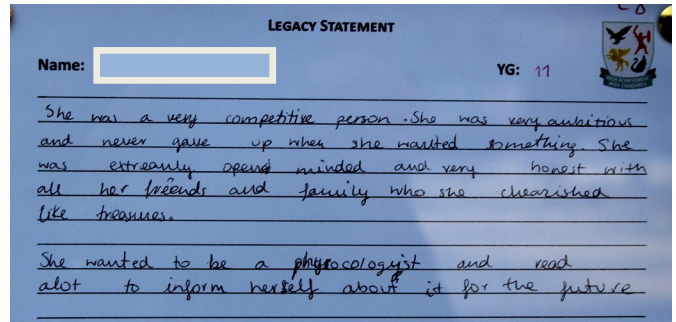 LEGACY STATEMENT
Name:
YG: 11
She was a very competitive person. She was very ambitious
and never gave up when she wanted something. She
was extreamly opend minded and very honest with
all her freends and family who she chearished
like treasures.
She wanted to be a phycocologyist and read
alot to inform herself about it for the future